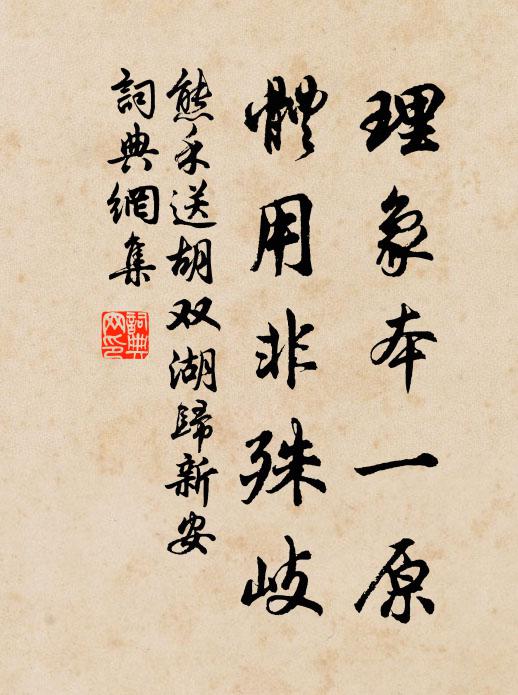 理象本一原
體用非殊岐
熊禾送胡双湖歸新安
詞典網集
詞典網印